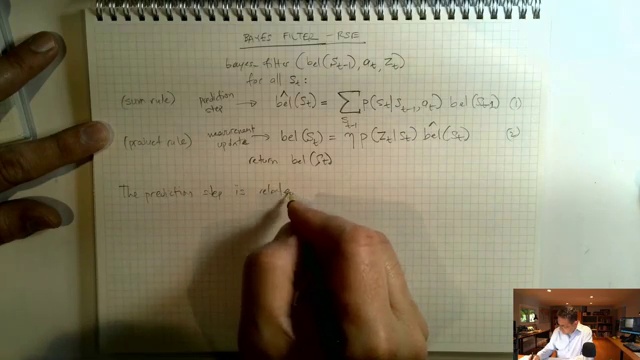 BAYES FILTER - RSE
bayes-filter (bel(S_{t-1}), a_t, Z_t)
for all S_t:
(sum rule) prediction step → b̂el(S_t) = ∑_{S_{t-1}} P(S_t|S_{t-1}, a_t) bel(S_{t-1}) (1)
(product rule) measurement update → bel(S_t) = η P(Z_t|S_t) b̂el(S_t) (2)
return bel(S_t)
The prediction step is relate